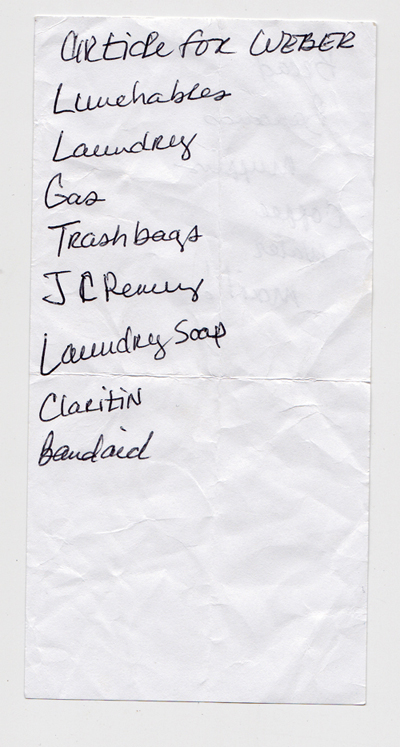 Article for WEBER
Lunchables
Laundry
Gas
Trashbags
JC Penny
Laundry Soap
Claritin
Bandaid